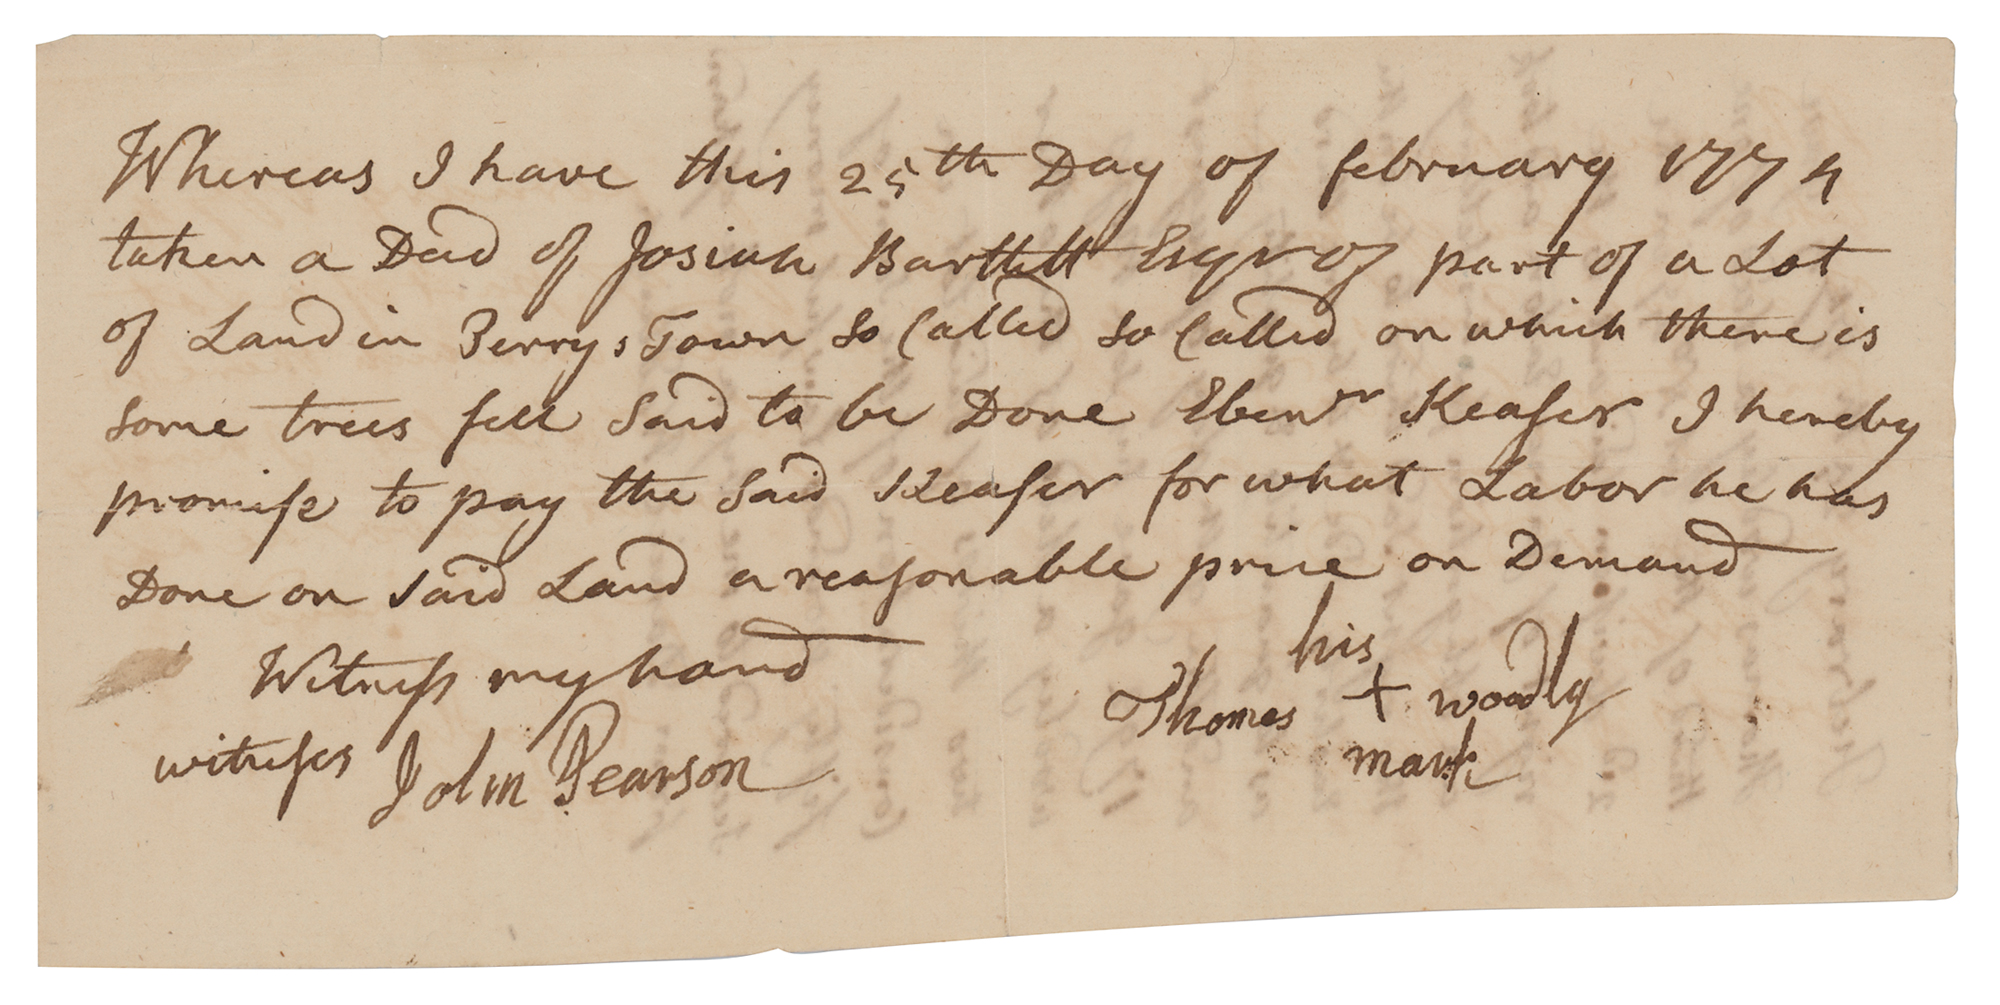 Whereas I have this 25th Day of february 1774
taken a Deed of Josiah Bartlett Esqr of part of a Lot
of Land in Perrys Town So Called So Called on which there is
some trees fell Said to be Done Ebenr Keaser I hereby
promise to pay the Said Keaser for what Labor he has
Done on Said Land a reasonable price on Demand
Witness my hand
his
Thomas + woodly
mark
witness John Pearson